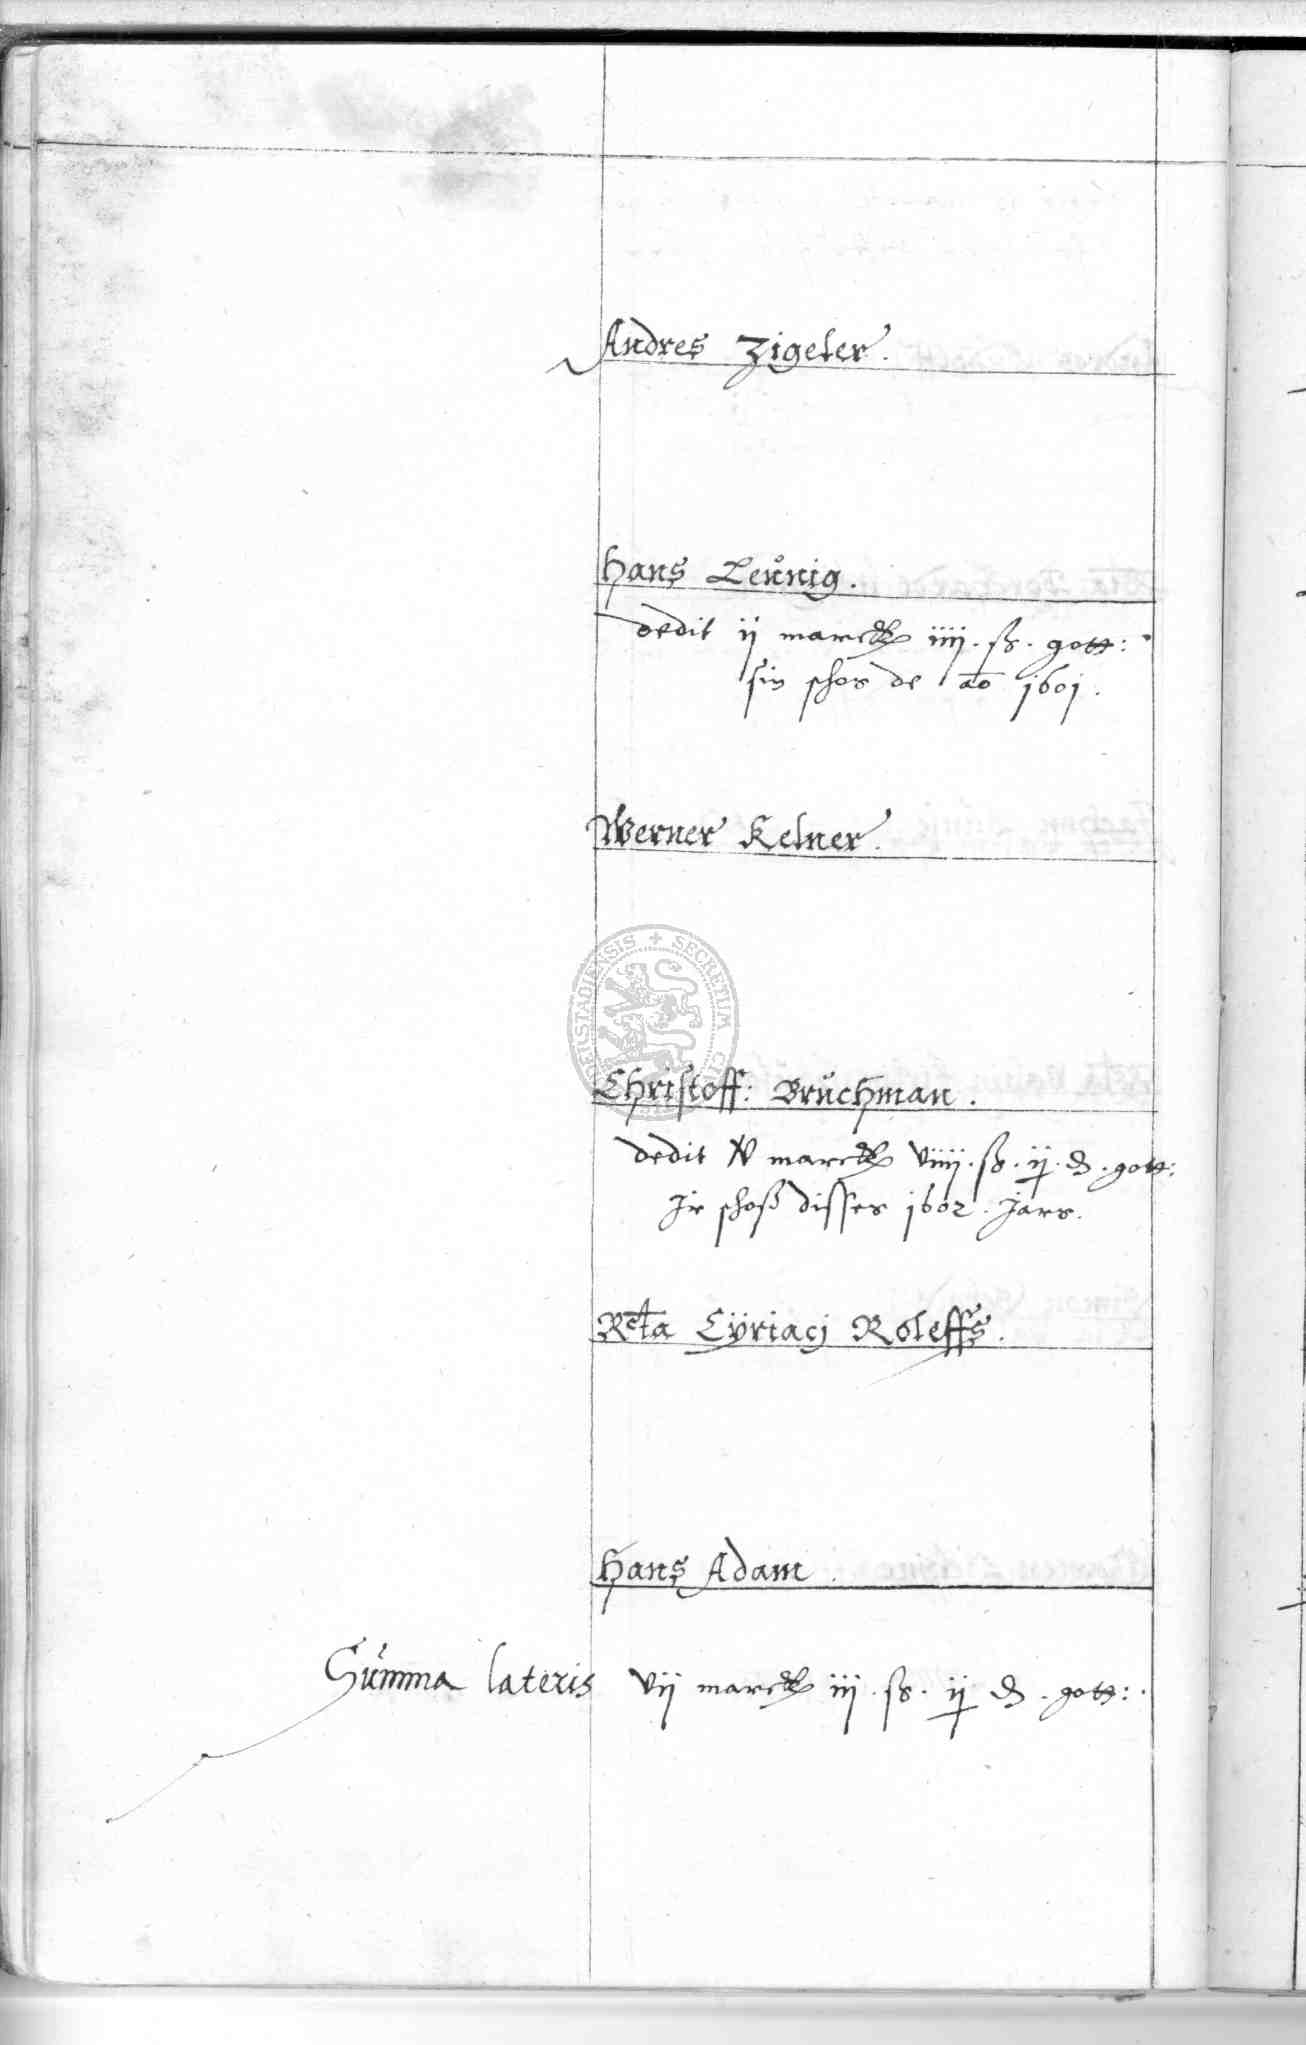 Andres Zigeler.
Hans Leůnig.
dedit ij marck iiij. ß. gott:
sin schos de ao 1601.
Werner Kelner.
Christoff: Brůchman.
dedit v marck viiij. ß. ij. d. gott:
Jr schoß disses 1602. Jars.
Rcta Cÿriacj Roleffs.
Hans Adam.
Sům̃a lateris vij marck iij. ß. ij d. gott:.
SECRETUM